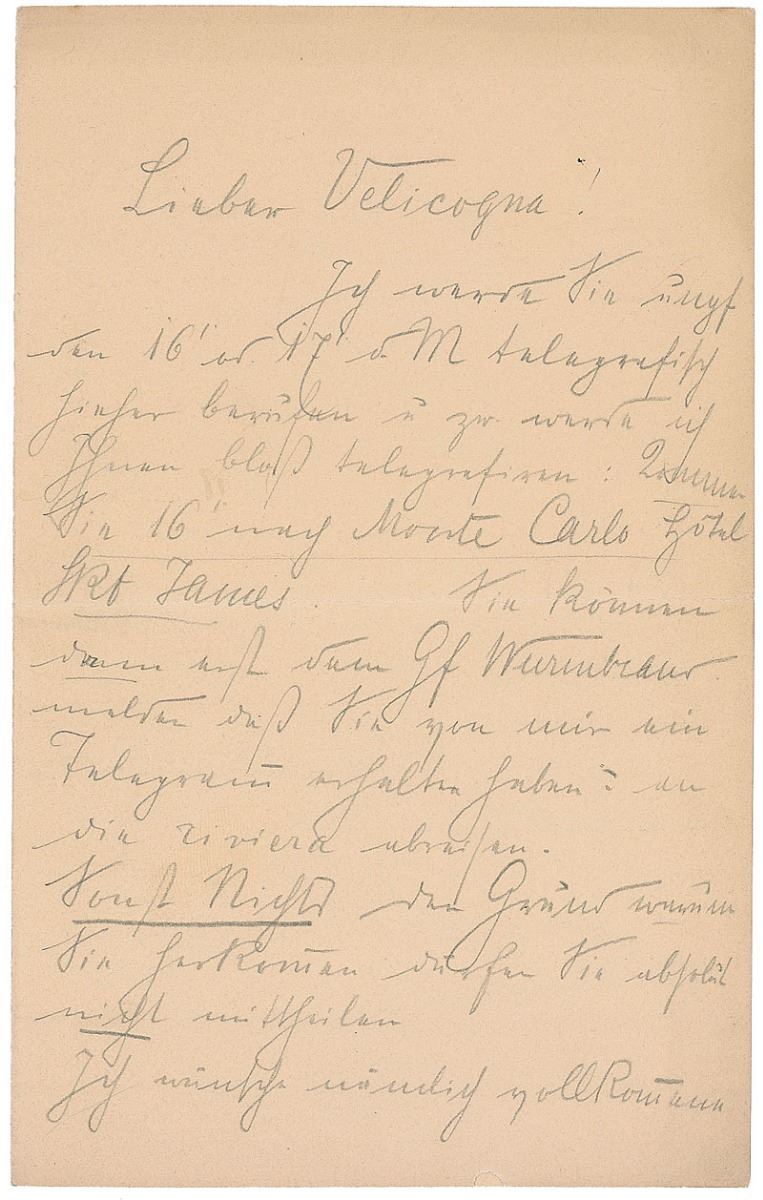 Lieber Velicogna!
Ich werde Sie ungf
den 16' od. 17' d. M telegrafisch
hieher berufen u zw. werde ich
Ihnen bloß telegrafiren: Kommen
Sie 16' nach Monte Carlo Hôtel
Skt James. Sie können
dann erst dem Gf Wurmbrand
melden daß Sie von mir ein
Telegram̅ erhalten haben u an
die Riviera abreisen.
Sonst Nichts den Grund warum
Sie herkom̅en dürfen Sie absolut
nicht mittheilen
Ich wünsche nämlich vollkom̅ene